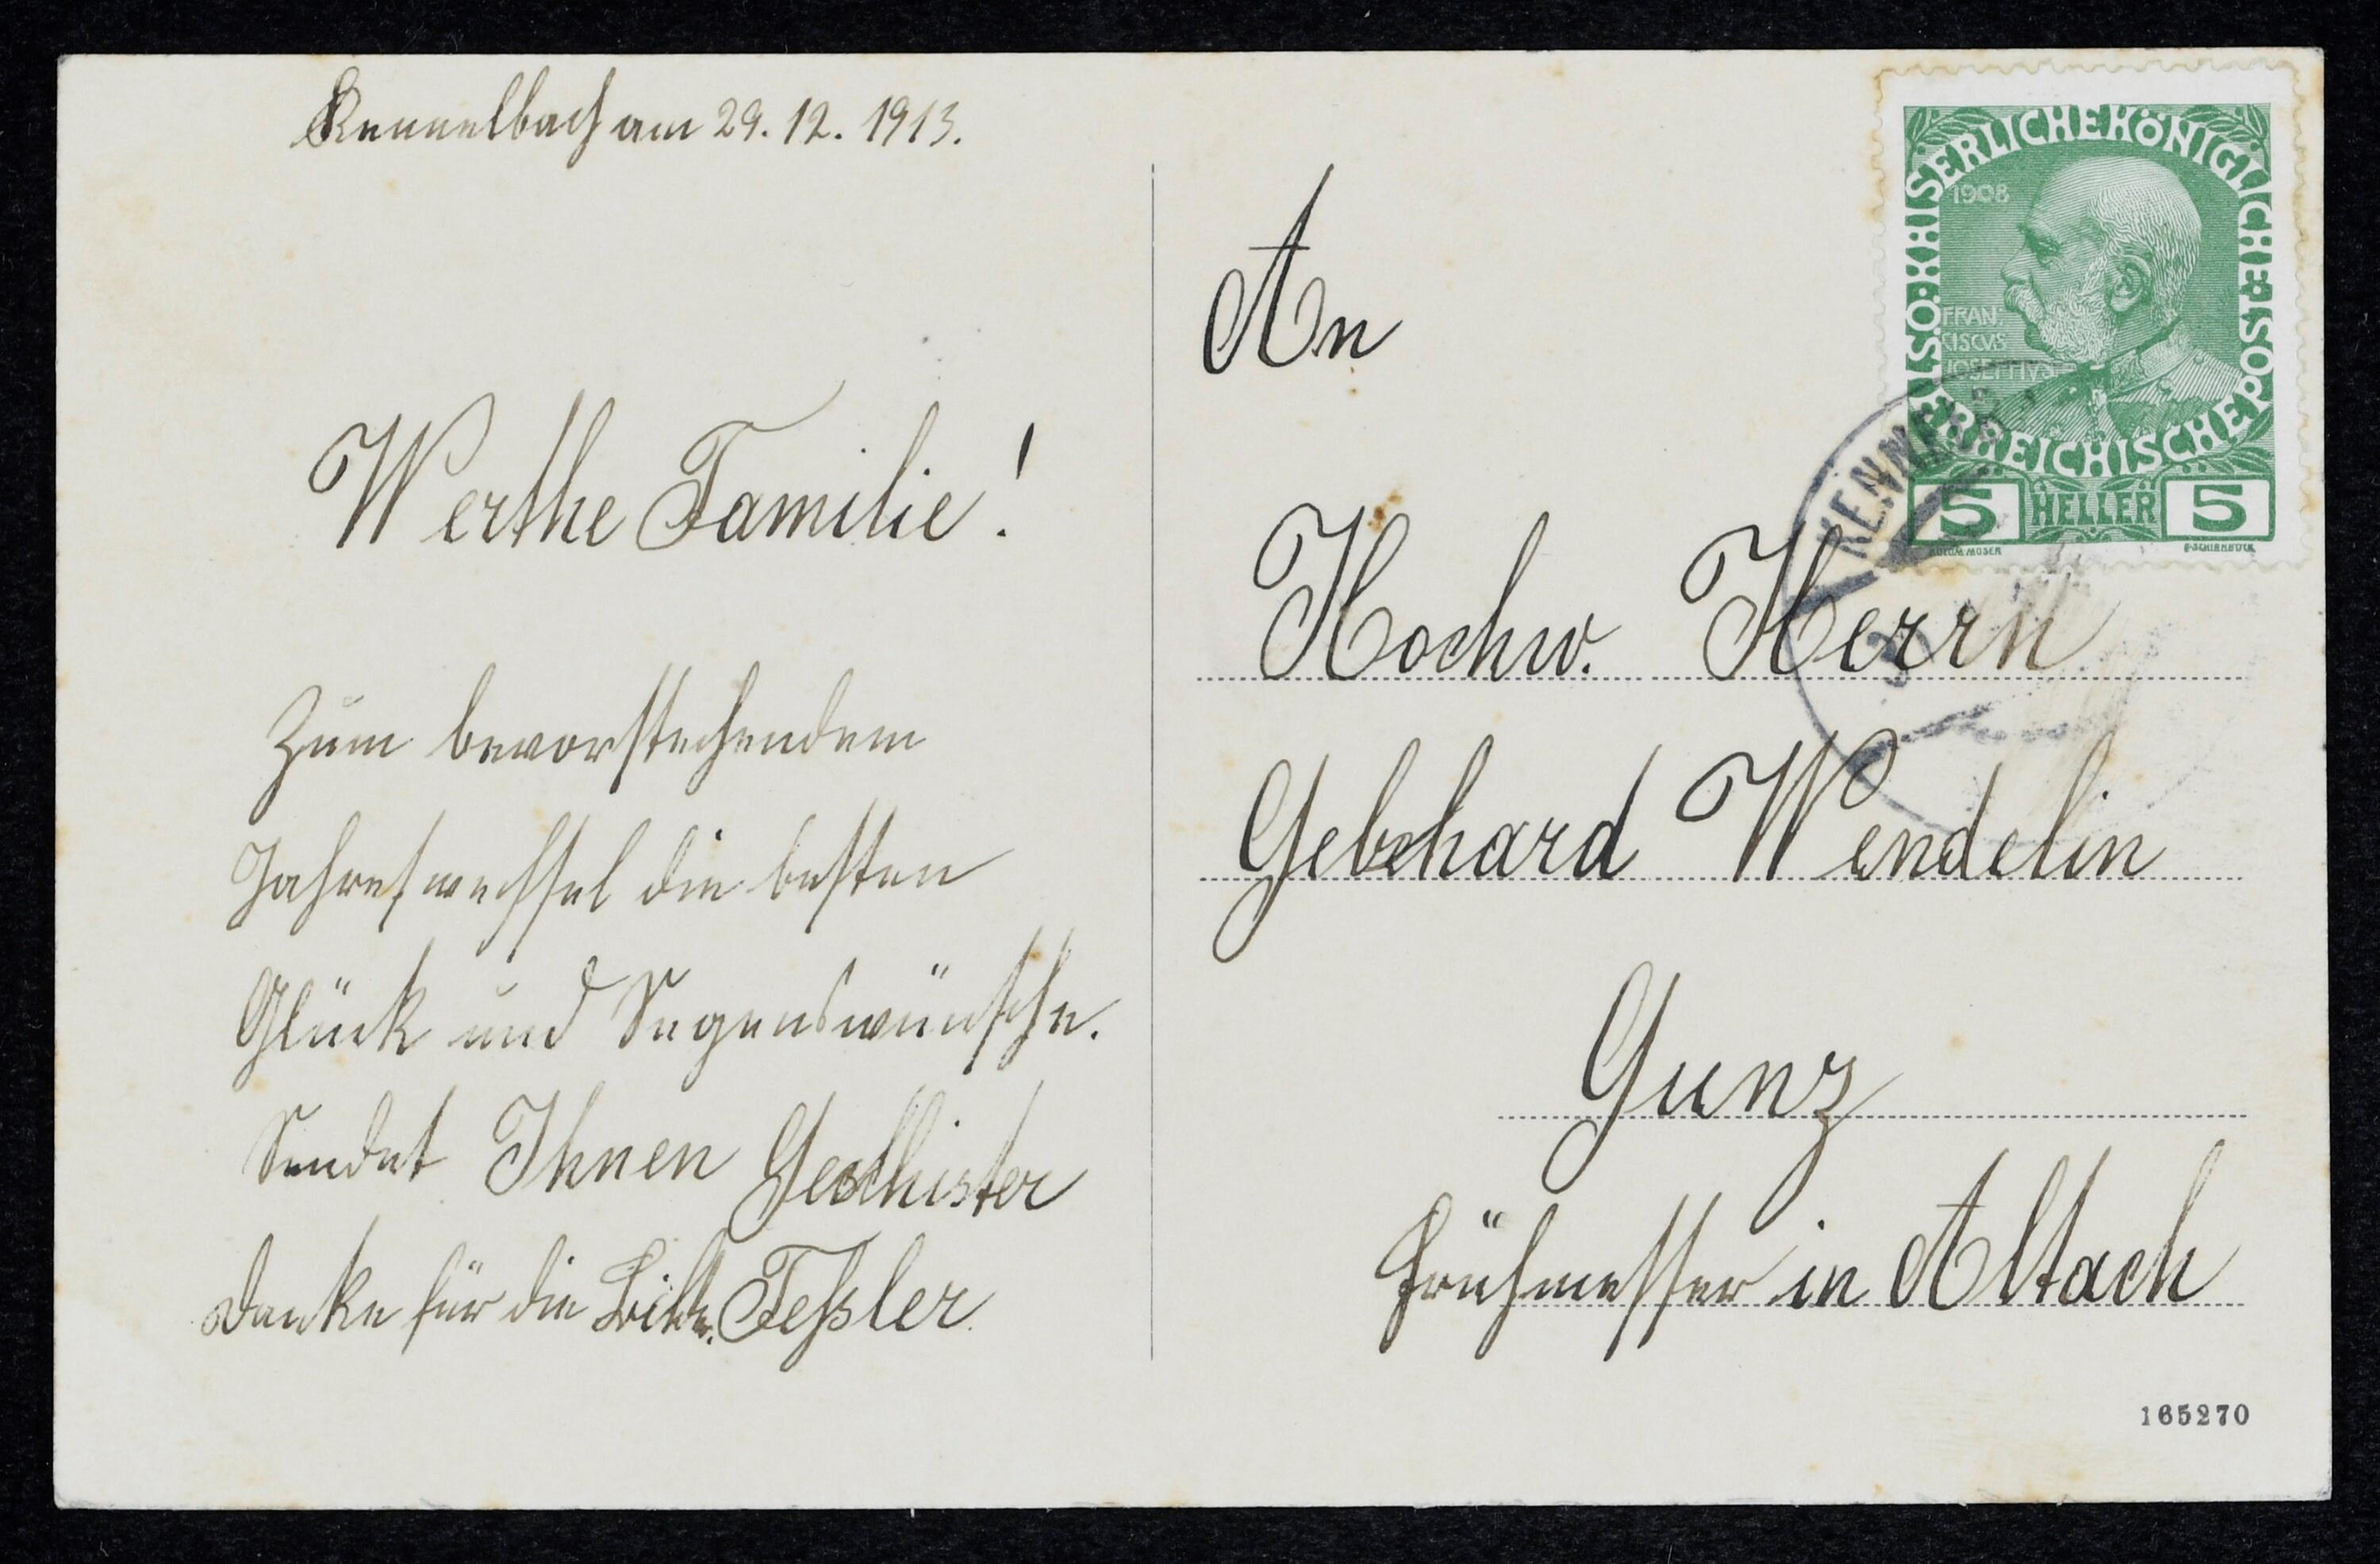 Kennelbach am 29. 12. 1913.
Werthe Familie!
Zum bevorstehendem
Jahreswechsel die besten
Glück und Segenswünsche.
Sendet Ihnen
Danke für die Fessler
An
Hochw. Herrn
Gebehard Wendelin
Gunz
Frühmesser in Altach
KAISERLICHE KÖNIGLICHE
ÖSTERREICHISCHE POST
1908
FRAN
CISCVS
IOSEPHVS
5 HELLER 5
KOLOM. MOSER
F. SCHIRNBÖCK
KENNELB
165270